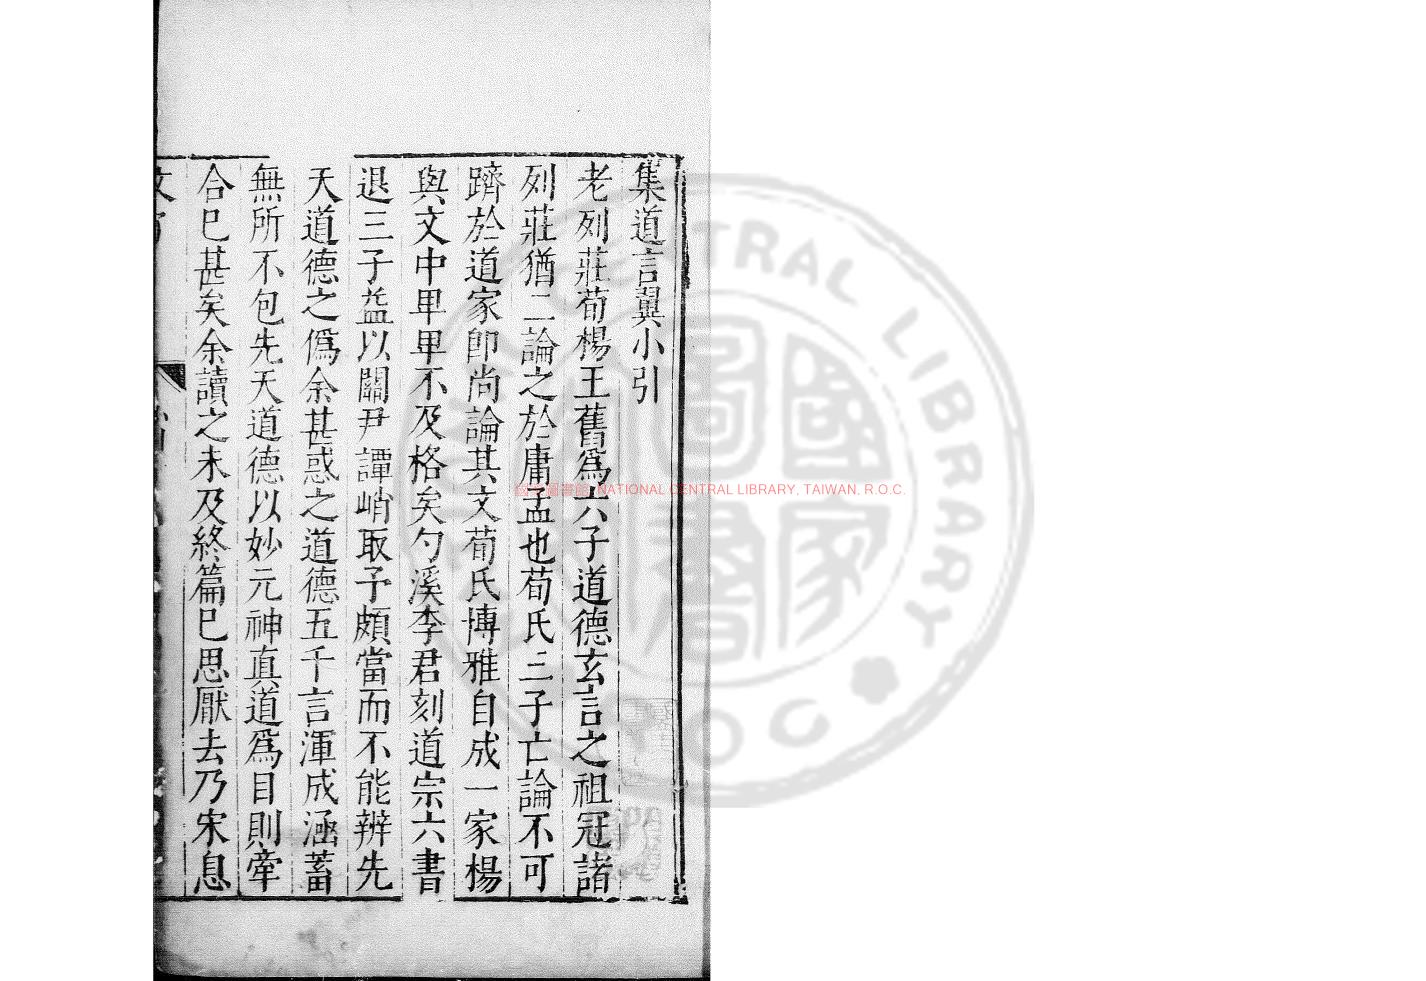 集道言翼小引
老列莊荀楊王舊為六子道德玄言之祖冠諸
列莊猶二論之於庸孟也荀氏三子亡論不可
躋於道家即尚論其文荀氏博雅自成一家楊
與文中卑卑不及格矣勺溪李君刻道宗六書
退三子益以關尹譚峭取予頗當而不能辨先
天道德之僞余甚惑之道德五千言渾成涵蓄
無所不包先天道德以妙元神真道爲目則牽
合已甚矣余讀之未及終篇已思厭去乃宋息
國家圖書館 NATIONAL CENTRAL LIBRARY, TAIWAN, R.O.C.
CENTRAL LIBRARY
R.O.C